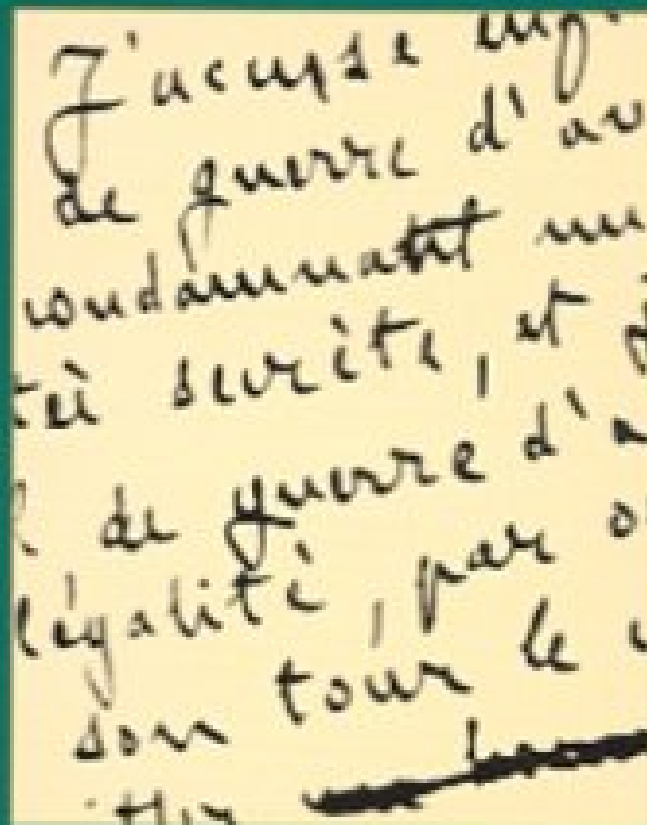 J'accuse enf
de guerre d'av
condamnant un
tée secrète, et j
l de guerre d'a
légalité, par o
son tour le